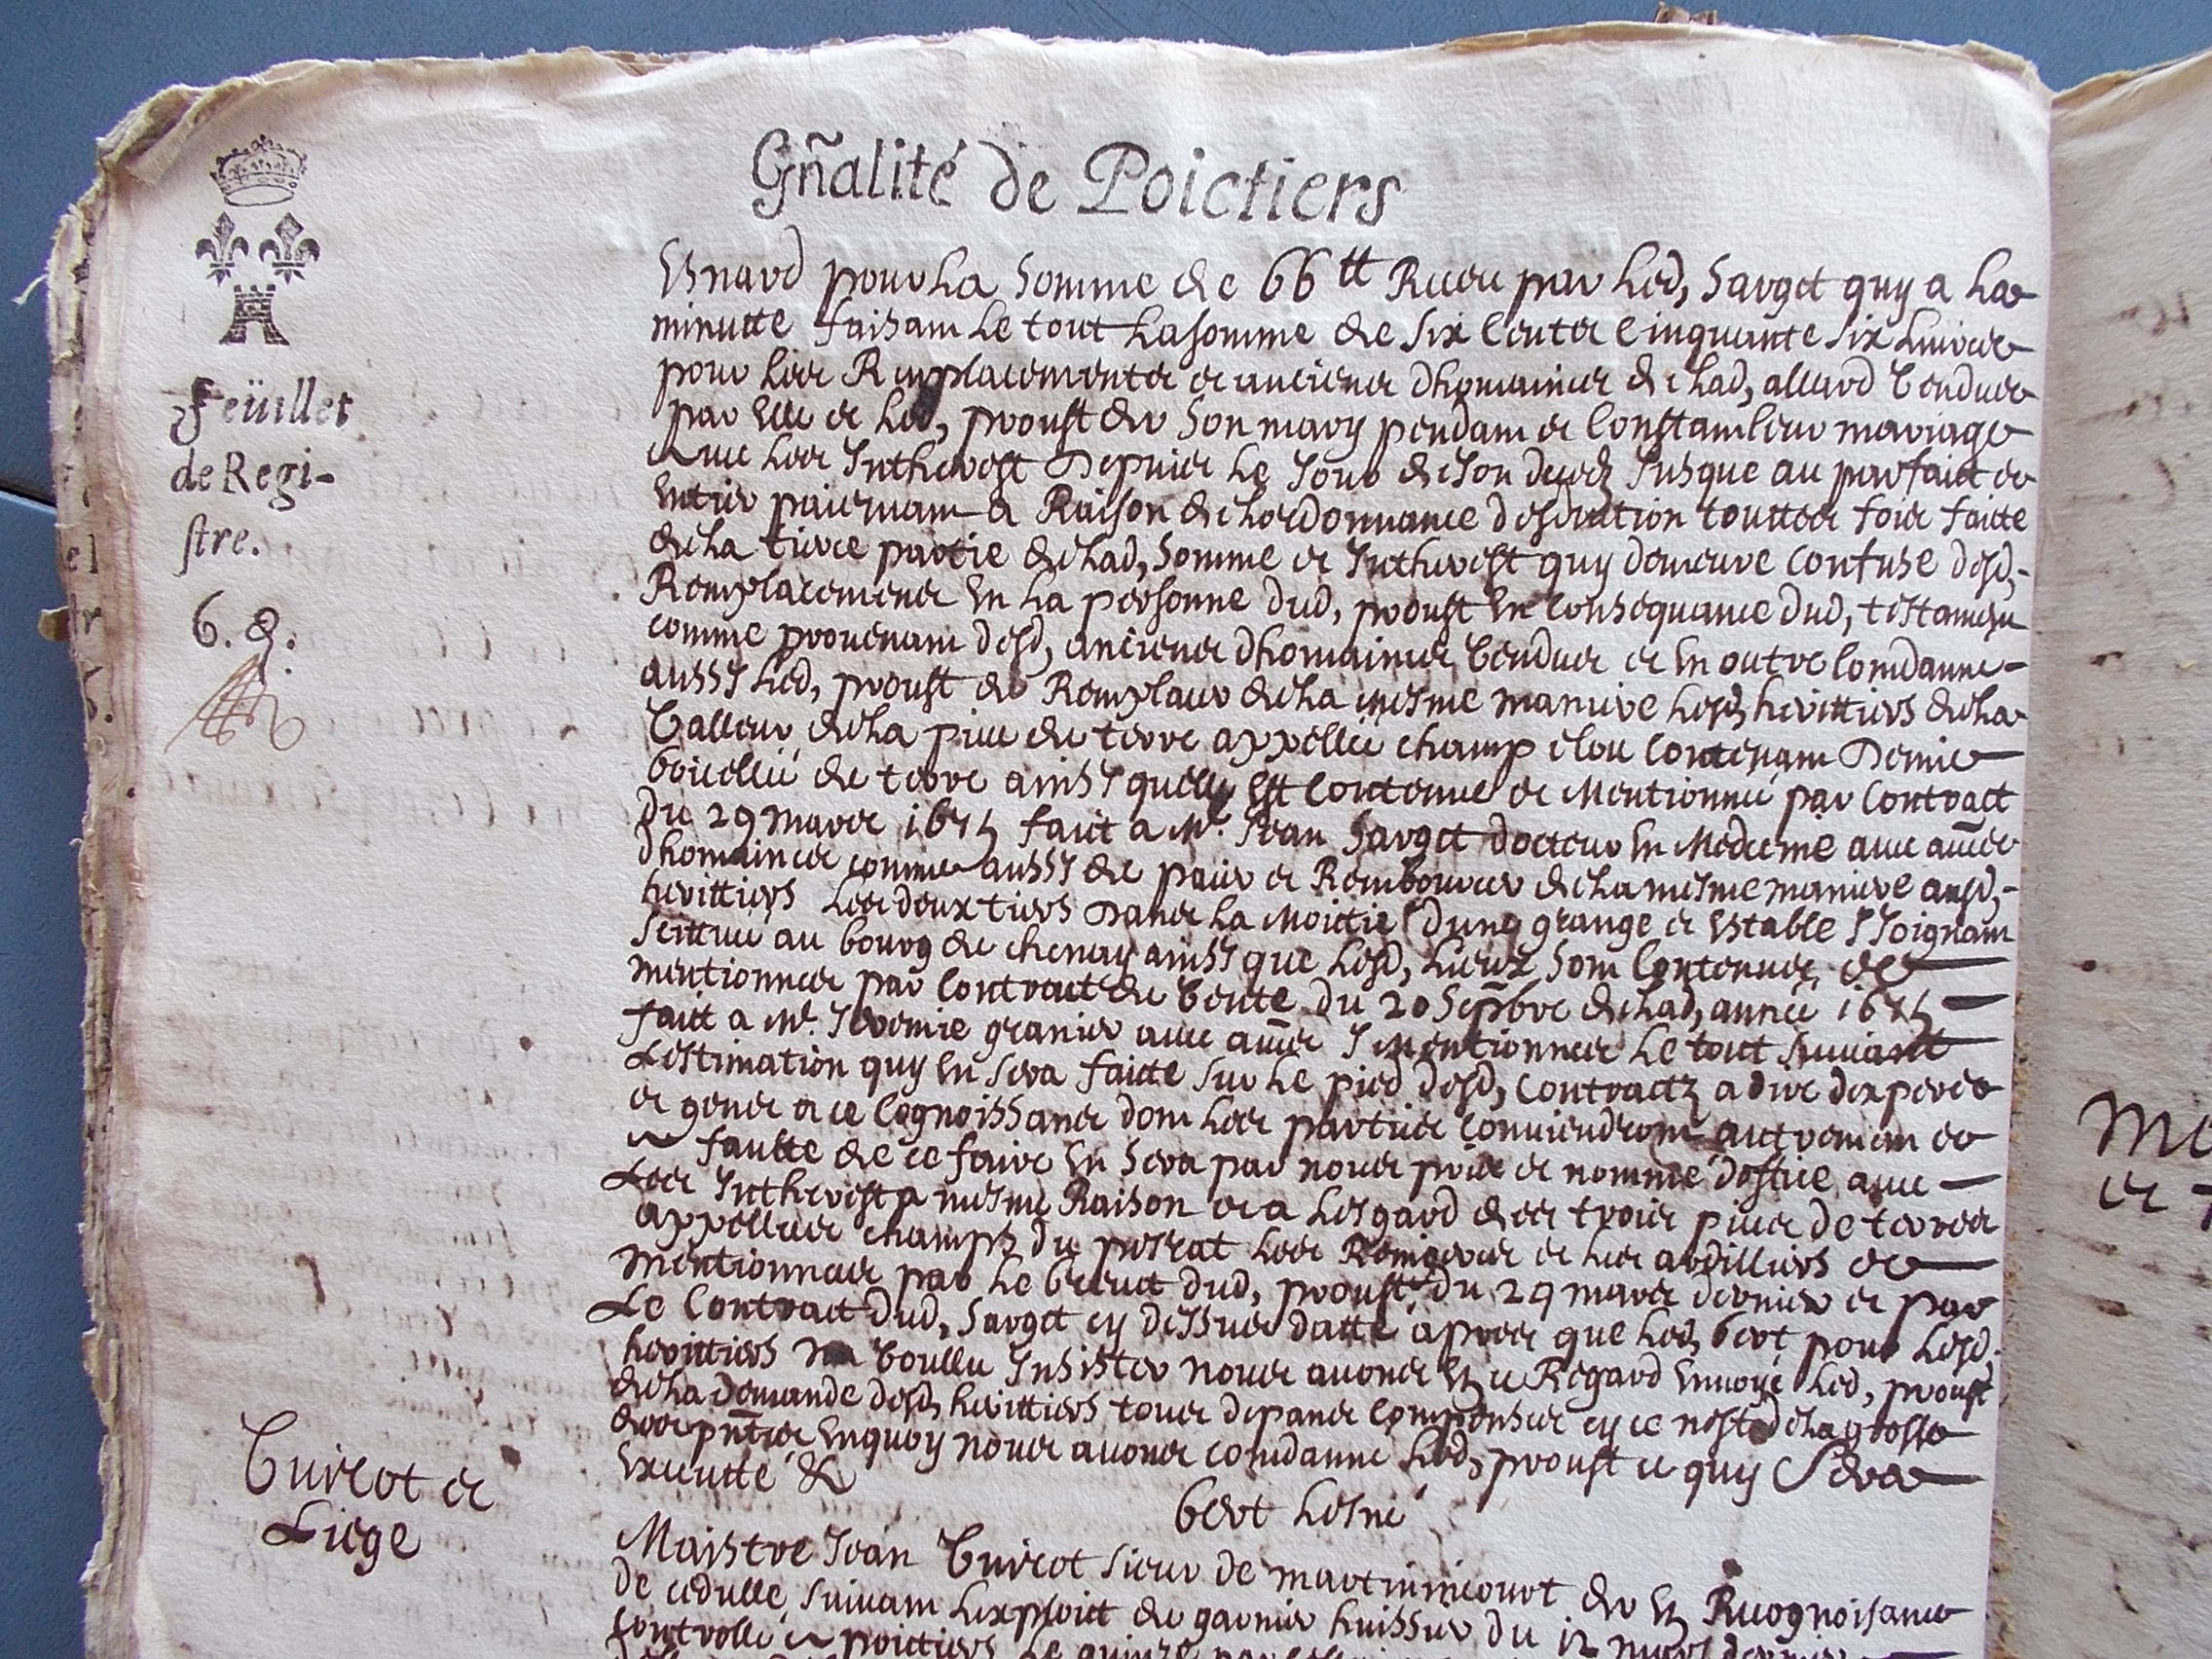 Gñalité de Poictiers
Feüillet
de Regi-
stre.
6. d.
Esnard pour la somme de 66 tt Receu par led, sarget quy a la
minutte faisant le tout la somme de six Cents Cinquante six Livres
pour les Remplacements et anciens dhomaines de lad, allard Vendues
par elle et led, proust deu son mary pendant et Constant leur mariage
avec les Intherest Depuis le Jour de son deces Jusque au parfaict et
entier paiement a Raison de lordonnance desduction touttes fois faitte
de la tierce partie de lad, somme et Intherest quy demeure confuse desd,
Remplacements en la personne dud, proust en Consequance dud, testament
comme prouenant desd, anciens dhomaines Vendues et en outre Comdanné
aussy led, proust de Remplacer de la mesme maniere lesd, herittiers de la
Valleur de la piece de terre appellée champ clou Contenant Demie
boicellée de terre ainsy quelle est Contenue et Mentionnée par Contract
du 29 mars 1675 faict a Mr. Jean Sarget docteur en Medecine avec autres
dhomaines comme aussy de paier et Rembourcer de la mesme maniere ausd,
herittiers les deux tiers Dans la Moittie dung grange et estable Y Joignant
scittuée au bourg de chenay ainsy que lesd, Lieux sont Contenues et
mentionnes par Contract de Vente du 20 Sepbre de lad, année 1675
faict a Mr. Jeremie granier avec autres Y Mentionnes le tout suiuant
Lestimation quy en sera faitte sur le pied desd, Contractz a dire dexperts
et gens a ce Cognoissans dont les parties Conuiendront autrement et
a faulte de ce faire en sera par nous pris et nommé doffice avec
Les Intherest a mesme Raison et a lesgard des trois pieces de terres
appellées champs du perrat les Remigeres et les ardilliers et
mentionnes par le breuet dud, proust du 29 mars dernier et par
Le Contract dud, Sarget cy dessus datté apres que led, bert pour lesd,
herittiers na Voullu Insister nous auons en ce Regard enuoyé led, proust
de la demande desd, herittiers tous depans Compenses cy ce nest de la grosse
des pntes enquoy nous auons comdanné led, proust ce quy Sera
executté &
bert Lesné
Turcot et
Liege
Maistre Jean Turcot sieur de martinicourt der en Recognoisance
de cedulle suiuant Lexploict de garnier huissier du 12 mars dernier
Controllé a poictiers le quinze
Me
et